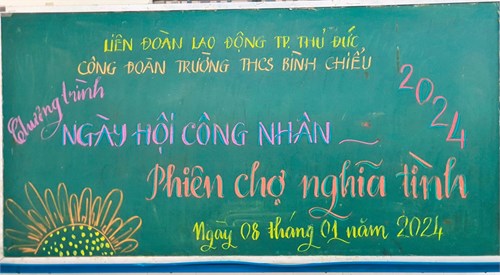 LIÊN ĐOÀN LAO ĐỘNG TP. THỦ ĐỨC
CÔNG ĐOÀN TRƯỜNG THCS BÌNH CHIỂU
Chương trình
2024
NGÀY HỘI CÔNG NHÂN
Phiên chợ nghĩa tình
Ngày 08 tháng 01 năm 2024